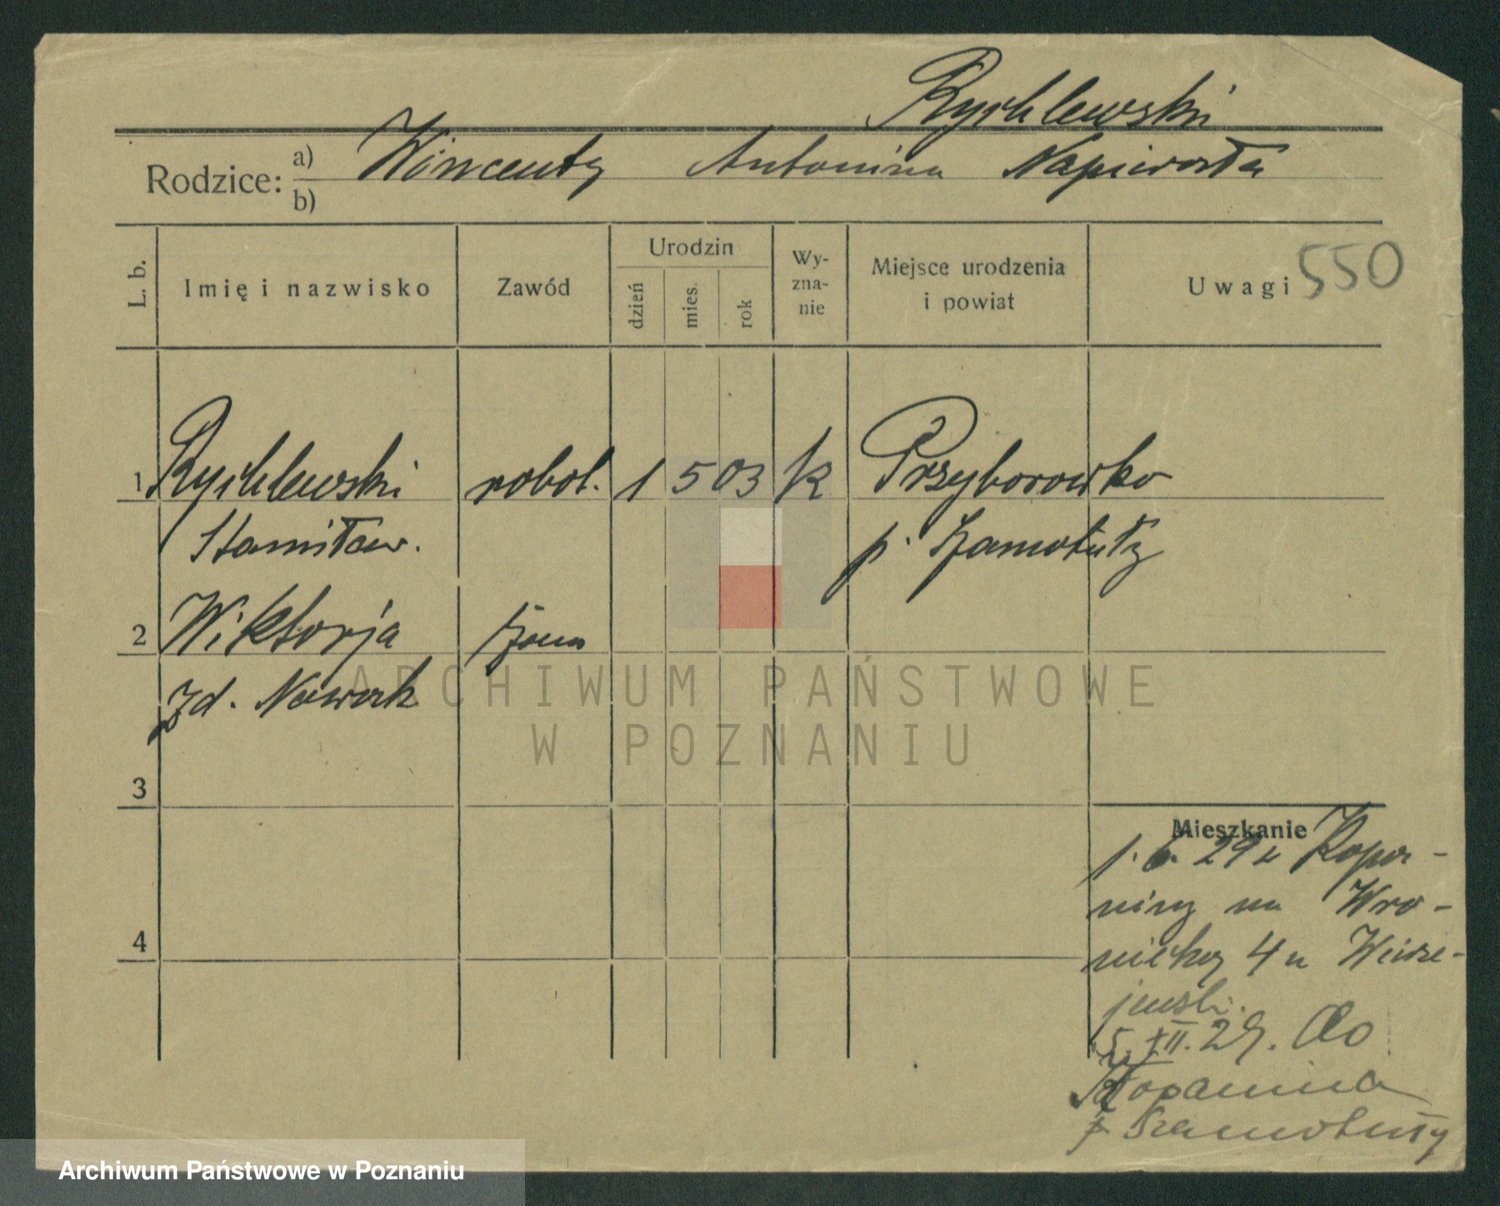 Rychlewski
Rodzice: a) Wincenty Antonina Napierała
b)
L. b. Imię i nazwisko Zawód Urodzin dzień mies. rok Wy-zna-nie Miejsce urodzenia i powiat Uwagi 550
1 Rychlewski robot. 1 5 03 k Przyborowko
Stanisław. p. Szamotuły
2 Wiktorja żona
zd. Nowak
3
Mieszkanie
1. 6. 29 z Kopa-
niny na Wro-
niecką 4 u
4
5. XII. 29. do
Kopanina
p Szamotuły
ARCHIWUM PAŃSTWOWE
W POZNANIU
Archiwum Państwowe w Poznaniu